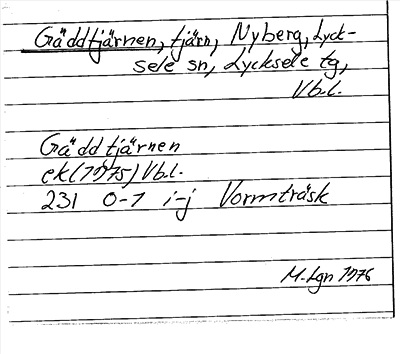 Gäddtjärnen, tjärn, Nyberg, Lyck-
sele sn, Lycksele tg,
Vb.l.
Gäddtjärnen
ek (1975) Vb.l.
231 0-1 i-j Vormträsk
M. Lgn 1976